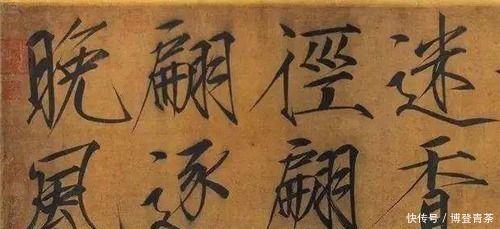 迷香
徑翩
翩逐
晚風
快传号 / 博登青茶